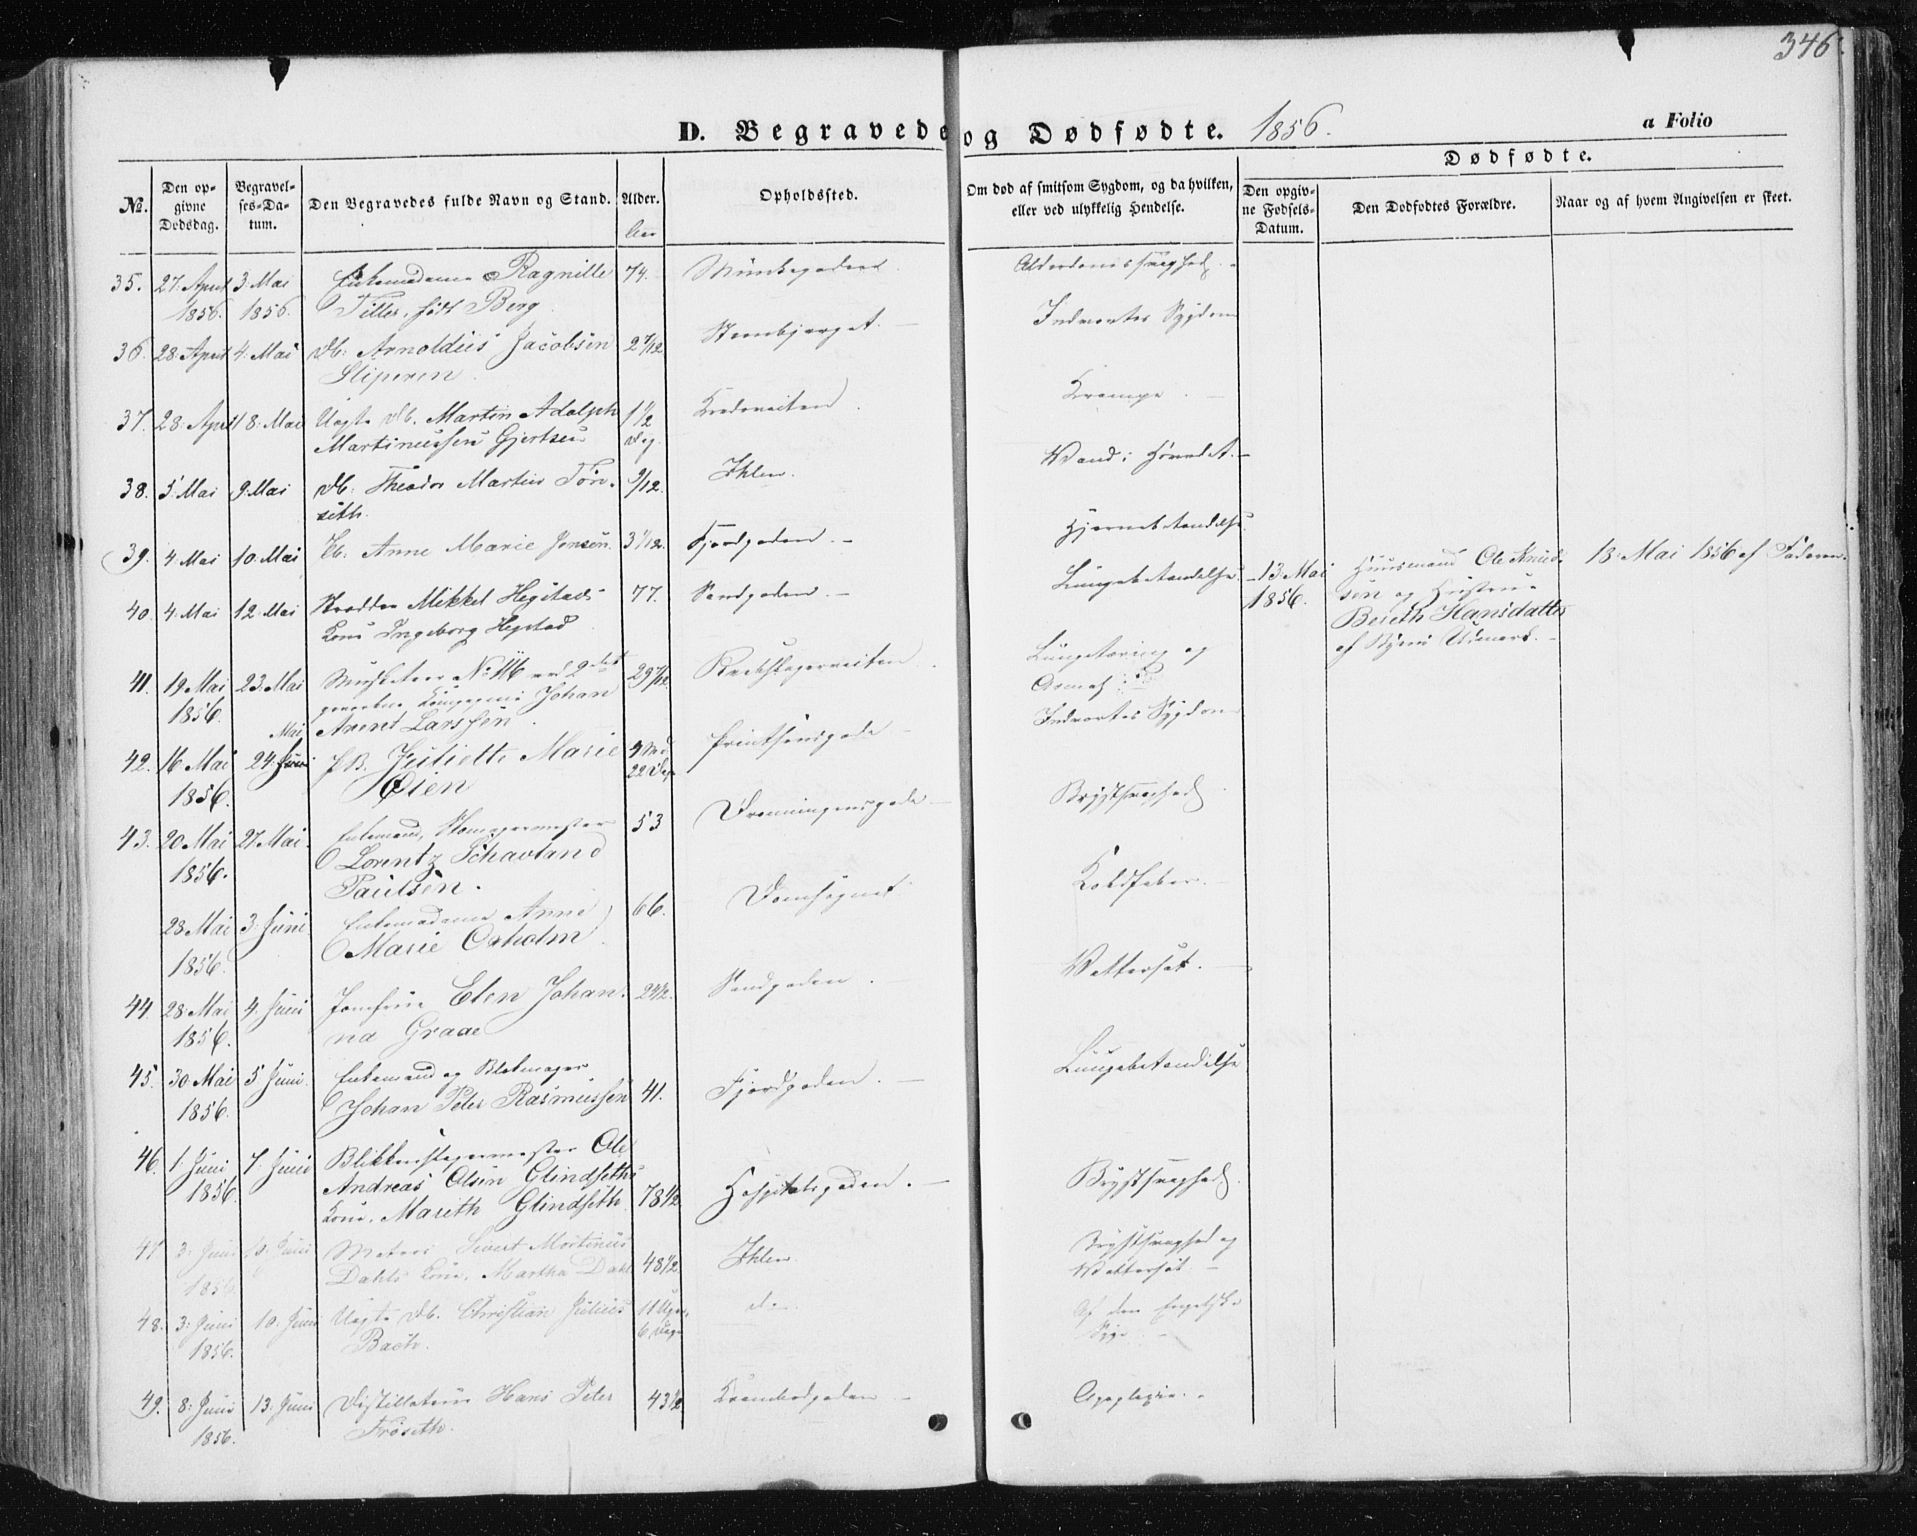 346.
D. Begravede og Dødfødte. 1856.
a Folio
Dødfødte.
No.
Den opgivne Dødsdag.
Begravelses-Datum.
Den Begravedes fulde Navn og Stand.
Alder.
Opholdssted.
Om død af smitsom Sygdom, og da hvilken, eller ved ulykkelig Hendelse.
Den opgivne Fødsels-Datum.
Den Dødfødtes Forældre.
Naar og af hvem Angivelsen er skeet.
35. 27. April 3. Mai Enkemadame Ragnille 74. Munkegaden. Alderdomssvaghed.
1856. 1856. Tiller, født Berg.
36. 28. April 4. Mai Db. Arnoldus Jacobsen 2 7/12 Steenbjerget. Indvortes Sygdom
Sliperen.
37. 28. April 8. Mai Uægte Db. Martin Adolph 1 1/2 Krampe.
Martinussen Gjertsen Dg.
38. 5. Mai 9. Mai Db. Theodor Martin Tøn- 9/12. Ihlen. Vand i Hovedet.
seth.
39. 4. Mai 10. Mai Pb. Anne Marie Jensen. 3 1/12. Fjordgaden. Hjernebetændelse
40. 4. Mai 12. Mai Skrædder Mikkel Hegstads 77. Sandgaden. Lungebetændelse
Kone Ingeborg Hegstad
13 Mai 1856. Huusmand Ole Knud-
sen og Hustru
Bereth Hansdatter
af Byens Udmark.
13. Mai 1856 af Faderen.
41. 19. Mai 23. Mai Musketeer No. 116 ved 2det 29 7/12 Lungetæring og
1856. gevorbne Kompagnie Johan
Arent Larssen.
Mai
42. 16. Mai 24. Juni PB. Juliette Marie Printsensgade Indvortes Sygdom
1856. Øien 22 Dage
43. 20 Mai 27. Mai. Enkemand, 53 Dronningensgade Brystsvaghed
1856. Lorentz Schavland
Paulsen.
28 Mai 3. Juni Enkemadame Anne 66. Domsognet Koldfeber.
1856. Marie Oxholm.
44. 28. Mai 4. Juni Jomfrue Elen Johan- 24 1/2. Sandgaden. Vattersot.
1856. na Graae
45. 30 Mai 5 Juni. Enkemand og Blokmager 41. Fjordgaden. Lungebetændelse
1856. Johan Peter Rasmussen
46. 1. Juni 7. Juni Blikkenslagermester Ole
1856. Andreas Olsen Glindseths
Kone, Mareth Glindseth. 78 1/2 Hospitalsgaden. Brystsvaghed.
47 3. Juni 10. Juni Matros Sivert Martinus Brystsvaghed og
1856. Dahls Kone, Martha Dahl 48 1/2 Ihlen. Vattersot.
48. 3. Juni 10. Juni Uægte Db. Christian Julius 11 Uger, do. Af den Engelske
1856. Bach. 6 Dage Syge.
49. 8. Juni 13. Juni Destillateur Hans Peter 43 1/2 Krambodgaden Apoplexie.
1856. Frøseth.